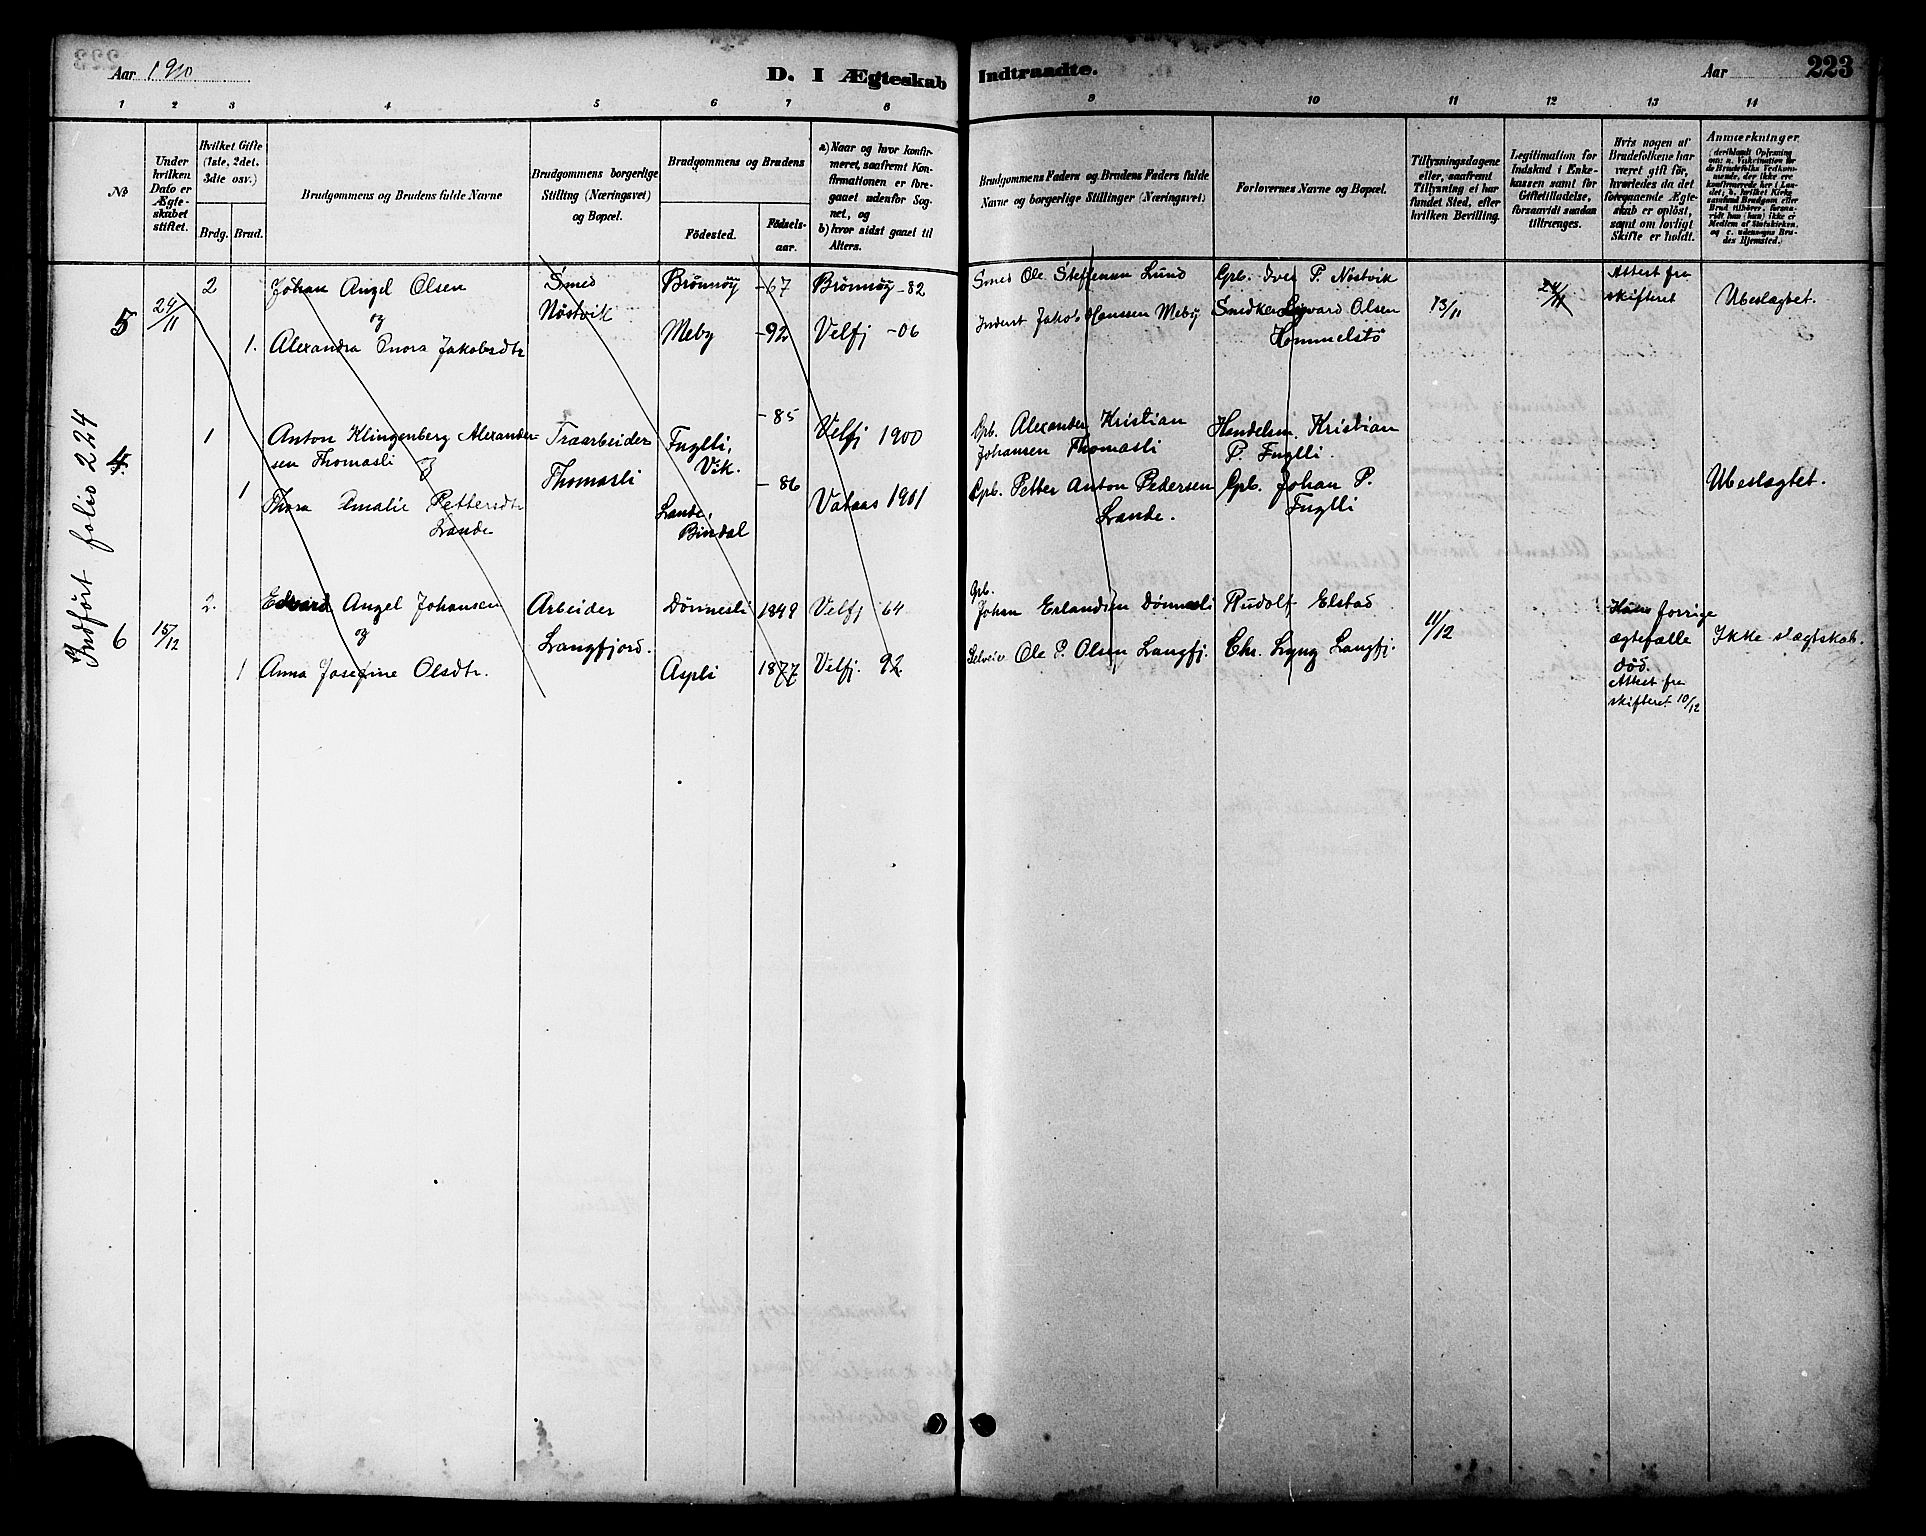 Aar 1910
D. I Ægteskab Indtraadte.
Aar
223
1 2 3 4 5 6 7 8 9 10 11 12 13 14
No
Under hvilken Dato er Ægteskabet stiftet.
Hvilket Gifte (1ste, 2det, 3die osv.)
Brdg. Brud.
Brudgommens og Brudens fulde Navne
Brudgommens borgerlige Stilling (Næringsvei) og Bopæl.
Brudgommens og Brudens
Födested.
Födselsaar.
a) Naar og hvor konfirmeret, saafremt Konfirmationen er foregaaet udenfor Sognet, og
b) hvor sidst gaaet til Alters.
Brudgommens Faders og Brudens Faders fulde Navne og borgerlige Stillinger (Næringsvei)
Forlovernes Navne og Bopæl.
Tillysningsdagene eller, saafremt Tillysning ei har fundet Sted, efter hvilken Bevilling.
Legitimation for Indskud i Enkekassen samt for Giftetilladelse, forsaavidt saadan tiltrænges.
Hvis nogen af Brudefolkene har været gift för, hvorledes da det foregaaende Ægteskab er oplöst, samt om lovligt Skifte er holdt.
Anmærkninger
5
24/11
2
Johan Angel Olsen
og
1. Alexandra Jakobsdtr
Smed
Nöstvik
Brönnöy -67 Brönnöy -82
Meby -92 Velfj -06
Smed Ole Steffensen Lund
Inderst Jakob Hanssen Meby
Gpb. Iver P. Nöstvik
Olsen
Hommelstö
13/11
24/11
Attest fra
skifteret
Ubeslægtet.
Indført folio 224
4.
1
Anton Klingenberg Alexander-
sen Thomasli
og
1 Thora Amalie Pettersdtr
Lande
Træarbeider
Thomasli
Fuglli,
Vik.
-85
Velfj 1900
Lande,
Bindal
-86
Vataas 1901
Gpb. Alexander Kristian
Johansen Thomasli
Gpb. Petter Anton Pedersen
Lande.
Handelsm. Kristian
P. Fuglli.
Gpb. Johan P.
Fuglli
Ubeslægtet.
6
15/12
2.
Edvard Angel Johansen
og
1 Anna Josefine Olsdtr.
Arbeider
Langfjord.
Dönnesli 1849 Velfj 64
Aspli 1877 Velfj. 92
Gpb.
Johan Erlandsen Dönnesli
Selveier Ole P. Olsen Langfj.
Rudolf Elstad
Chr. Lyng Langfj.
11/12
Hans forrige
ægtefælle
död.
Attest fra
skifteret 10/12
Ikke slægtskab.